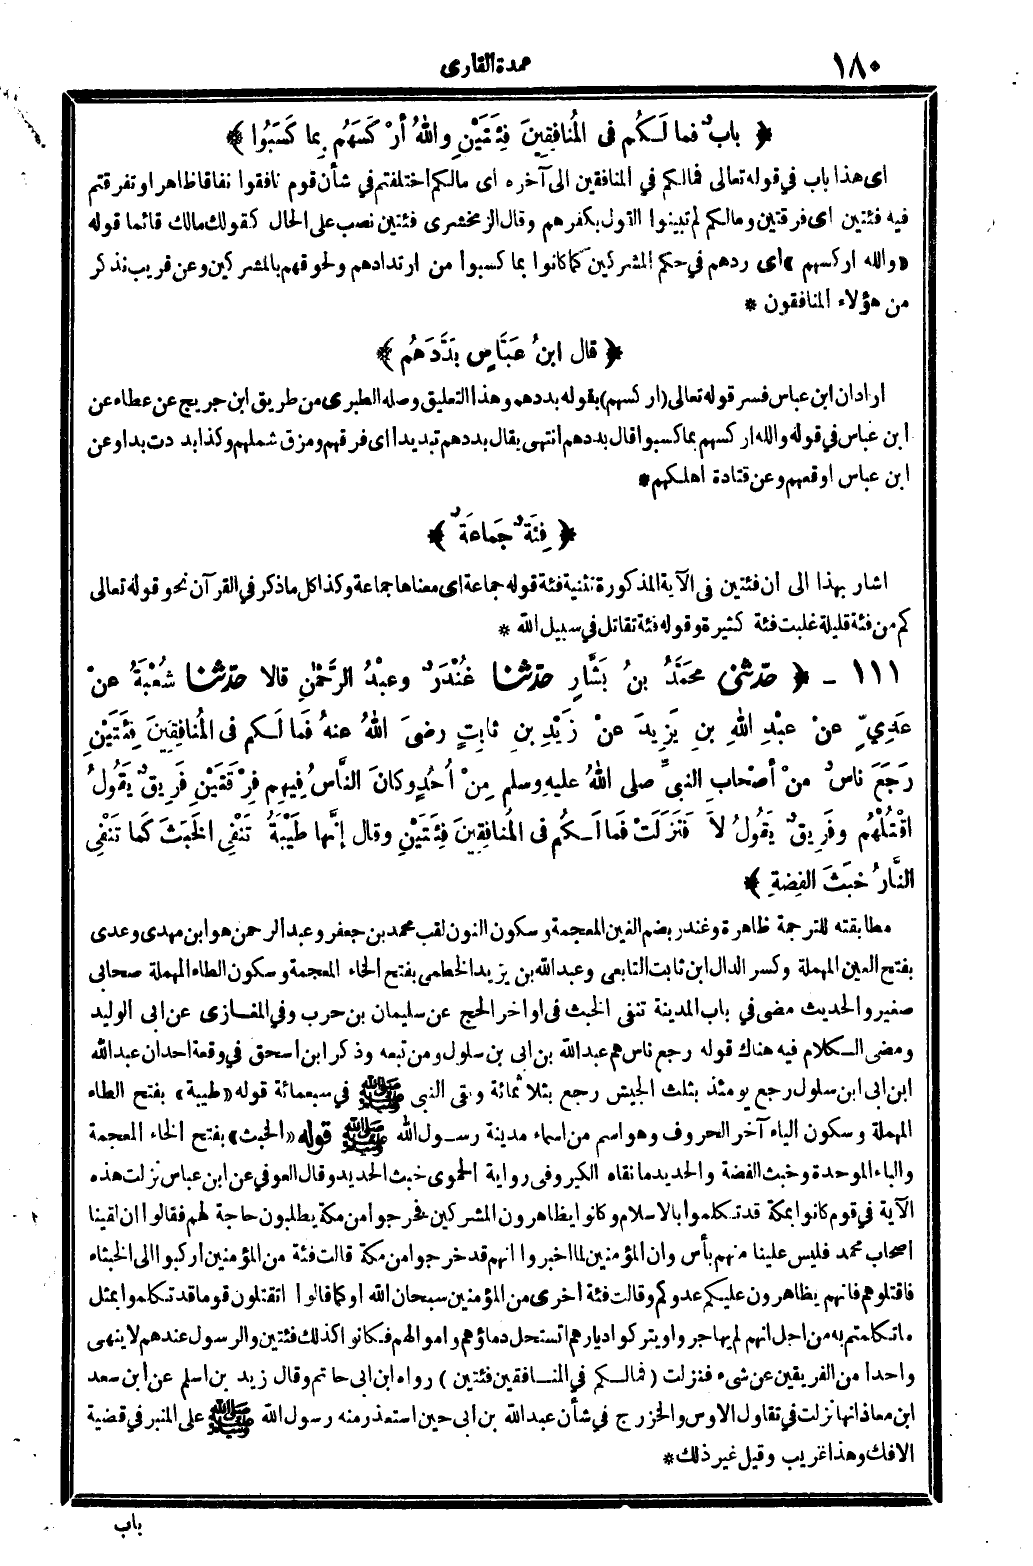 ١٨٠
عمدة القارى
﴿ بابٌ فما لَـكُم فى المُنافِقِينَ فِئَتَيْنِ واللهُ أرْكَسَهُم بِما كَسَبُوا ﴾
اى هذا باب في قوله تعالى فمالكم في المنافقين الى آخره اى مالكم اختلفتم في شأن قوم نافقوا نفاقا ظاهرا وتفرقتم
فيه فئتين اى فرقتين ومالكم لم تبينوا القول بكفرهم وقال الزمخشرى فئتين نصب على الحال كقولك مالك قائما قوله
«والله اركسهم» اى ردهم في حكم المشركين كما كانوا بما كسبوا من ارتدادهم ولحوقهم بالمشركين وعن قريب نذكر
من هؤلاء المنافقون *
﴿ قال ابنُ عَبَّاسٍ بَدَّدَهُم ﴾
ارادان ابن عباس فسر قوله تعالى (اركسهم) بقوله بددهم وهذا التعليق وصله الطبرى من طريق ابن جريج عن عطاء عن
ابن عباس في قوله والله اركسهم بما كسبوا قال بددهم انتهى يقال بددهم تبديدا اى فرقهم ومزق شملهم وكذا بددت بدا وعن
ابن عباس اوقعهم وعن قتادة اهلكهم *
﴿ فِئَةٌ جَماعَةٌ ﴾
اشار بهذا الى ان فئتين فى الآية المذكورة تثنية فئة قوله جماعة اى معناها جماعة وكذا كل ماذكر في القرآن نحو قوله تعالى
كم من فئة قليلة غلبت فئة كثيرة وقوله فئة تقاتل في سبيل الله *
١١١ ـ ﴿ حدّثنى محمَّدُ بنُ بَشَّارٍ حدّثنا غُنْدَرٌ وعبْدُ الرَّحْمٰنِ قالا حدّثنا شُعْبَةُ عنْ
عَدِيٍّ عنْ عبْدِ اللهِ بنِ يَزِيدَ عنْ زَيْدِ بنِ ثابِتٍ رضىَ اللهُ عنهُ فَما لَـكم فى المُنافِقِينَ فِئَتَيْنِ
رَجَعَ ناسٌ منْ أصْحابِ النبيِّ صلى اللهُ عليهِ وسلم مِنْ اُحُدٍ وكانَ النَّاسُ فِيهِم فِرْقَتَيْنِ فَرِيقٌ يَقُولُ
اقْتُلْهُم وفَرِيقٌ يَقُولُ لاَ فَنَزَلَتْ فَما لَـكُم فى المُنافِقِينَ فِئَتَيْنِ وقال إنَّها طَيْبَةُ تَنْفِى الخَبَثَ كَما تَنْفِى
النَّارُ خَبَثَ الفِضةِ ﴾
مطابقته للترجمة ظاهرة وغندر بضم الغين المعجمة وسكون النون لقب محمد بن جعفر وعبد الرحمن هو ابن مهدى وعدى
بفتح العين المهملة وكسر الدال ابن ثابت التابعى وعبدالله بن يزيد الخطمى بفتح الخاء المعجمة وسكون الطاء المهملة صحابى
صغير والحديث مضى في باب المدينة تنفى الخبث فى اواخر الحج عن سليمان بن حرب وفي المغازى عن ابى الوليد
ومضى الـكلام فيه هناك قوله رجع ناس هم عبدالله بن ابى بن سلول ومن تبعه وذكر ابن اسحق في وقعة احد ان عبدالله
ابن ابى ابن سلول رجع يومئذ بثلث الجيش رجع بثلاثمائة وبقى النبى ﷺ في سبعمائة قوله «طيبة» بفتح الطاء
المهملة وسكون الياء آخر الحروف وهو اسم من اسماء مدينة رسول الله ﷺ قوله «الخبث» بفتح الخاء المعجمة
والباء الموحدة وخبث الفضة والحديد ما نقاه الكير وفى رواية الحموى خبث الحديد وقال العوفي عن ابن عباس نزلت هذه
الآية في قوم كانوا بمكة قد تكلموا بالاسلام وكانوا يظاهرون المشركين فخرجوا من مكة يطلبون حاجة لهم فقالوا ان لقينا
اصحاب محمد فليس علينا منهم بأس وان المؤمنين لما اخبروا انهم قد خرجوا من مكة قالت فئة من المؤمنين اركبوا الى الخبثاء
فاقتلوهم فانهم يظاهرون عليكم عدوكم وقالت فئة أخرى من المؤمنين سبحان الله اوكما قالوا اتقتلون قوما قد تكلموا بمثل
ماتكلمتم به من اجل انهم لم يهاجروا ويتركوا ديارهم اتستحل دماؤهم واموالهم فكانوا كذلك فئتين والرسول عندهم لاينهى
واحدا من الفريقين عن شىء فنزلت ( فمالـكم في المنـافقين فئتين ) رواه ابن ابى حاتم وقال زيد بن اسلم عن ابن سعد
ابن معاذ انها نزلت في تقاول الاوس والخزرج في شأن عبدالله بن ابى حين استعذر منه رسول الله ﷺ على المنبر في قضية
الافك وهذا غريب وقيل غير ذلك *
باب